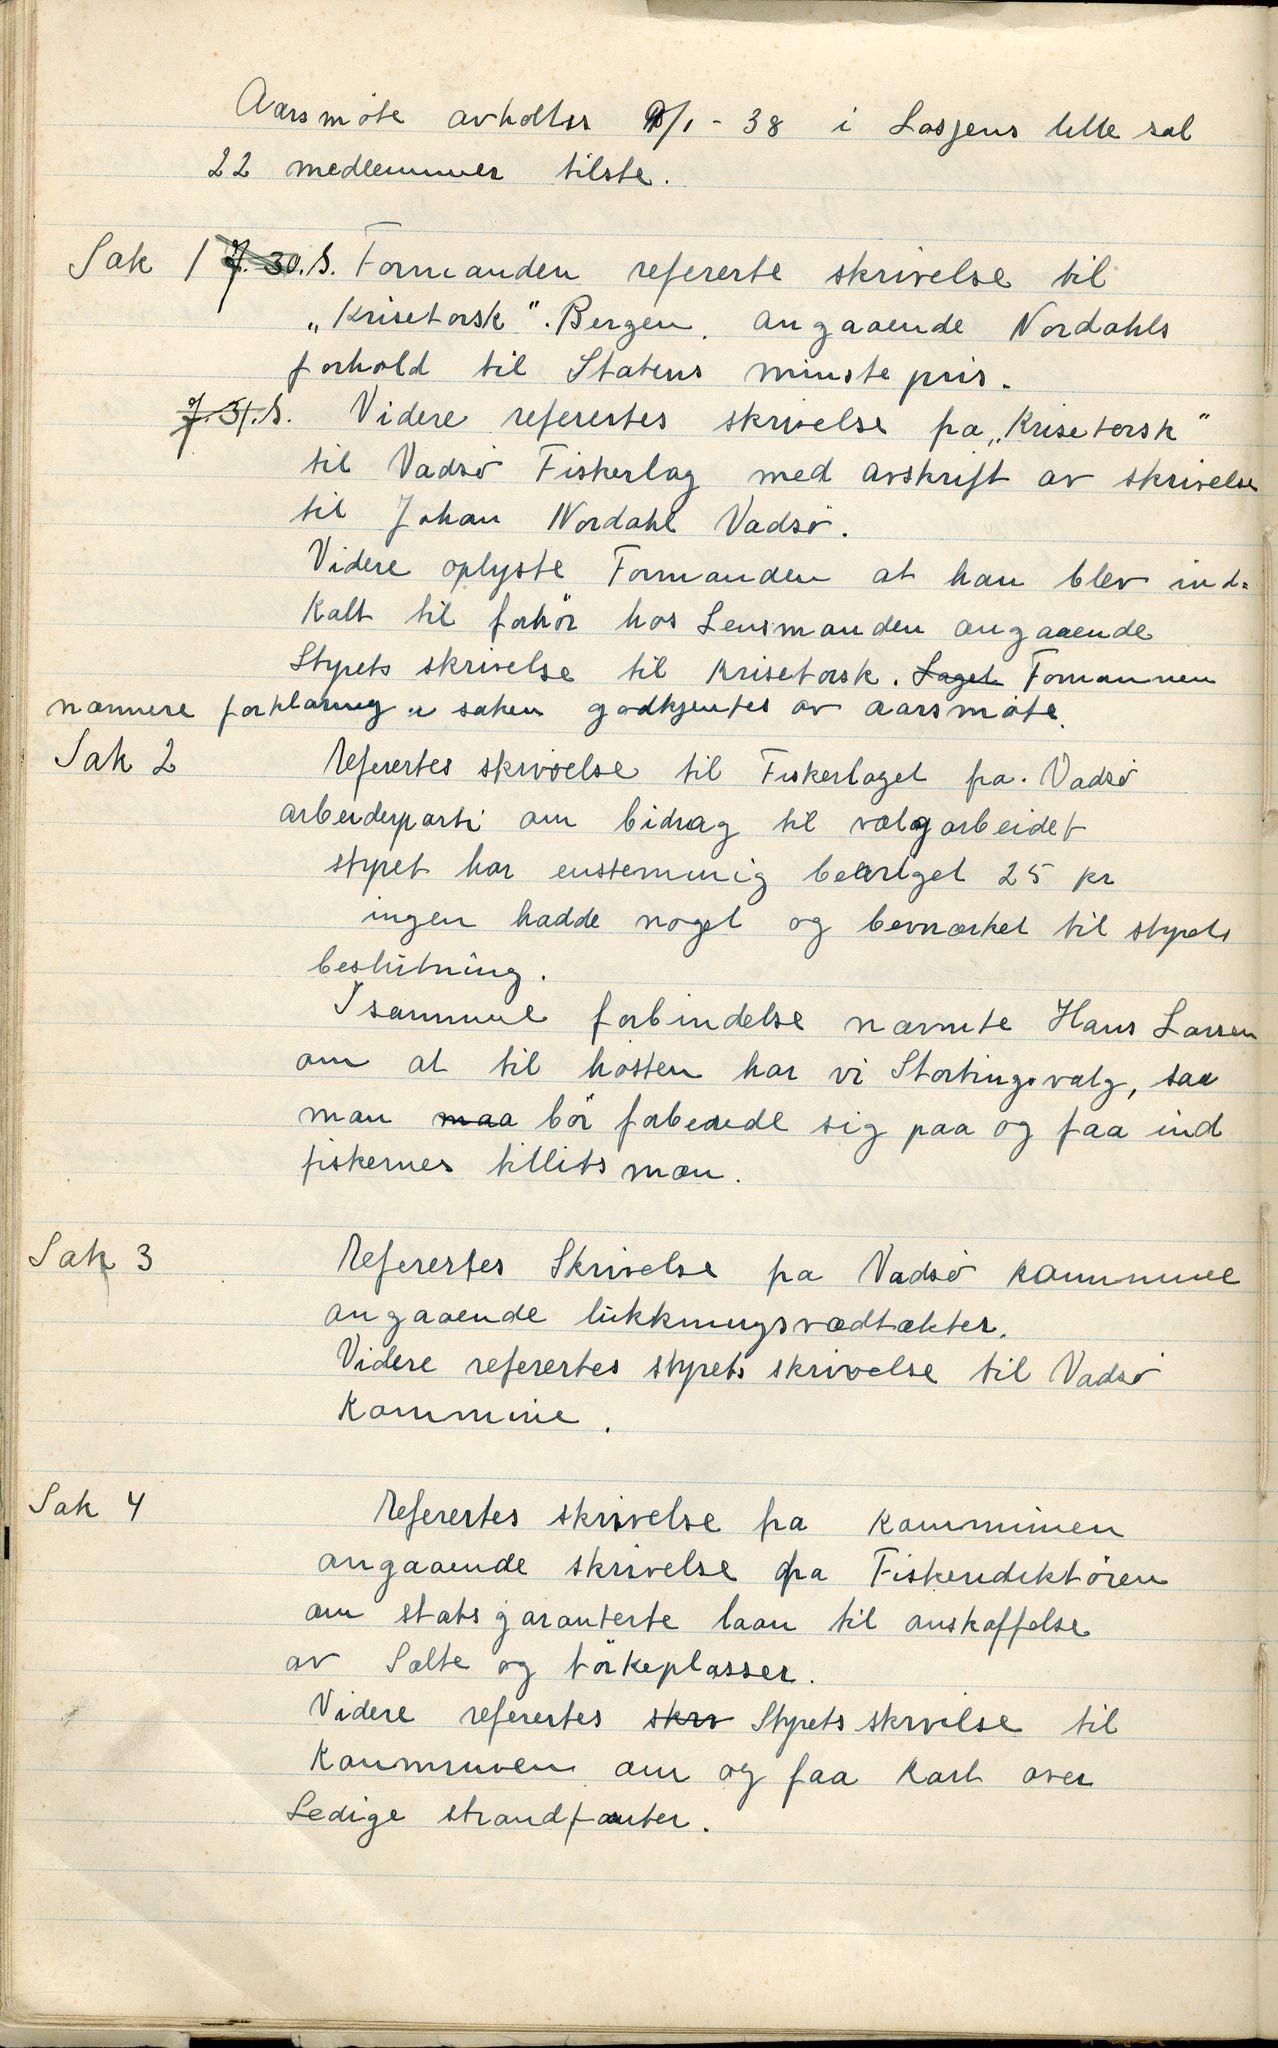 Aarsmöte avholdtes /1 - 38 i Losjens lille sal
22 medlemmer tilste.
Sak 1 J. 30. S. Formanden refererte skrivelse til
„Krisetorsk". Bergen. angaaende Nordahls
forhold til Statens minste pris.
J. 31. S. Videre referertes skrivelse fra „Krisetorsk"
til Vadsö Fiskerlag med avskrift av skrivelse
til Johan Nordahl Vadsö.
Videre oplyste Formanden at han blev ind=
kalt til forhör hos Lensmanden angaaende
Styrets skrivelse til Krisetorsk. Laget Formannen
nærmere forklaring i saken godkjentes av aarsmöte.
Sak 2 Referertes skrivelse til Fiskerlaget fra. Vadsö
arbeiderparti om bidrag til valgarbeidet
styret har enstemmig bevilget 25 kr
ingen hadde noget og bemærket til styrets
beslutning.
I samme forbindelse nævnte Hans Larsen
om at til hösten har vi Stortingsvalg, saa
man maa bör forberede sig paa og faa ind
fiskernes tillitsmæn.
Sak 3 Referertes Skrivelse fra Vadsö Kommune
angaaende lukkningsvedtækter.
Videre referertes styrets skrivelse til Vadsö
Kommune.
Sak 4 Referertes skrivelse fra Kommunen
angaaende skrivelse fra Fiskeridiktören
om statsgaranterte laan til anskaffelse
av Salte og törkeplasser.
Videre referertes skriv Styrets skrivelse til
Kommunen om og faa Kart over
Ledige strandtomter.